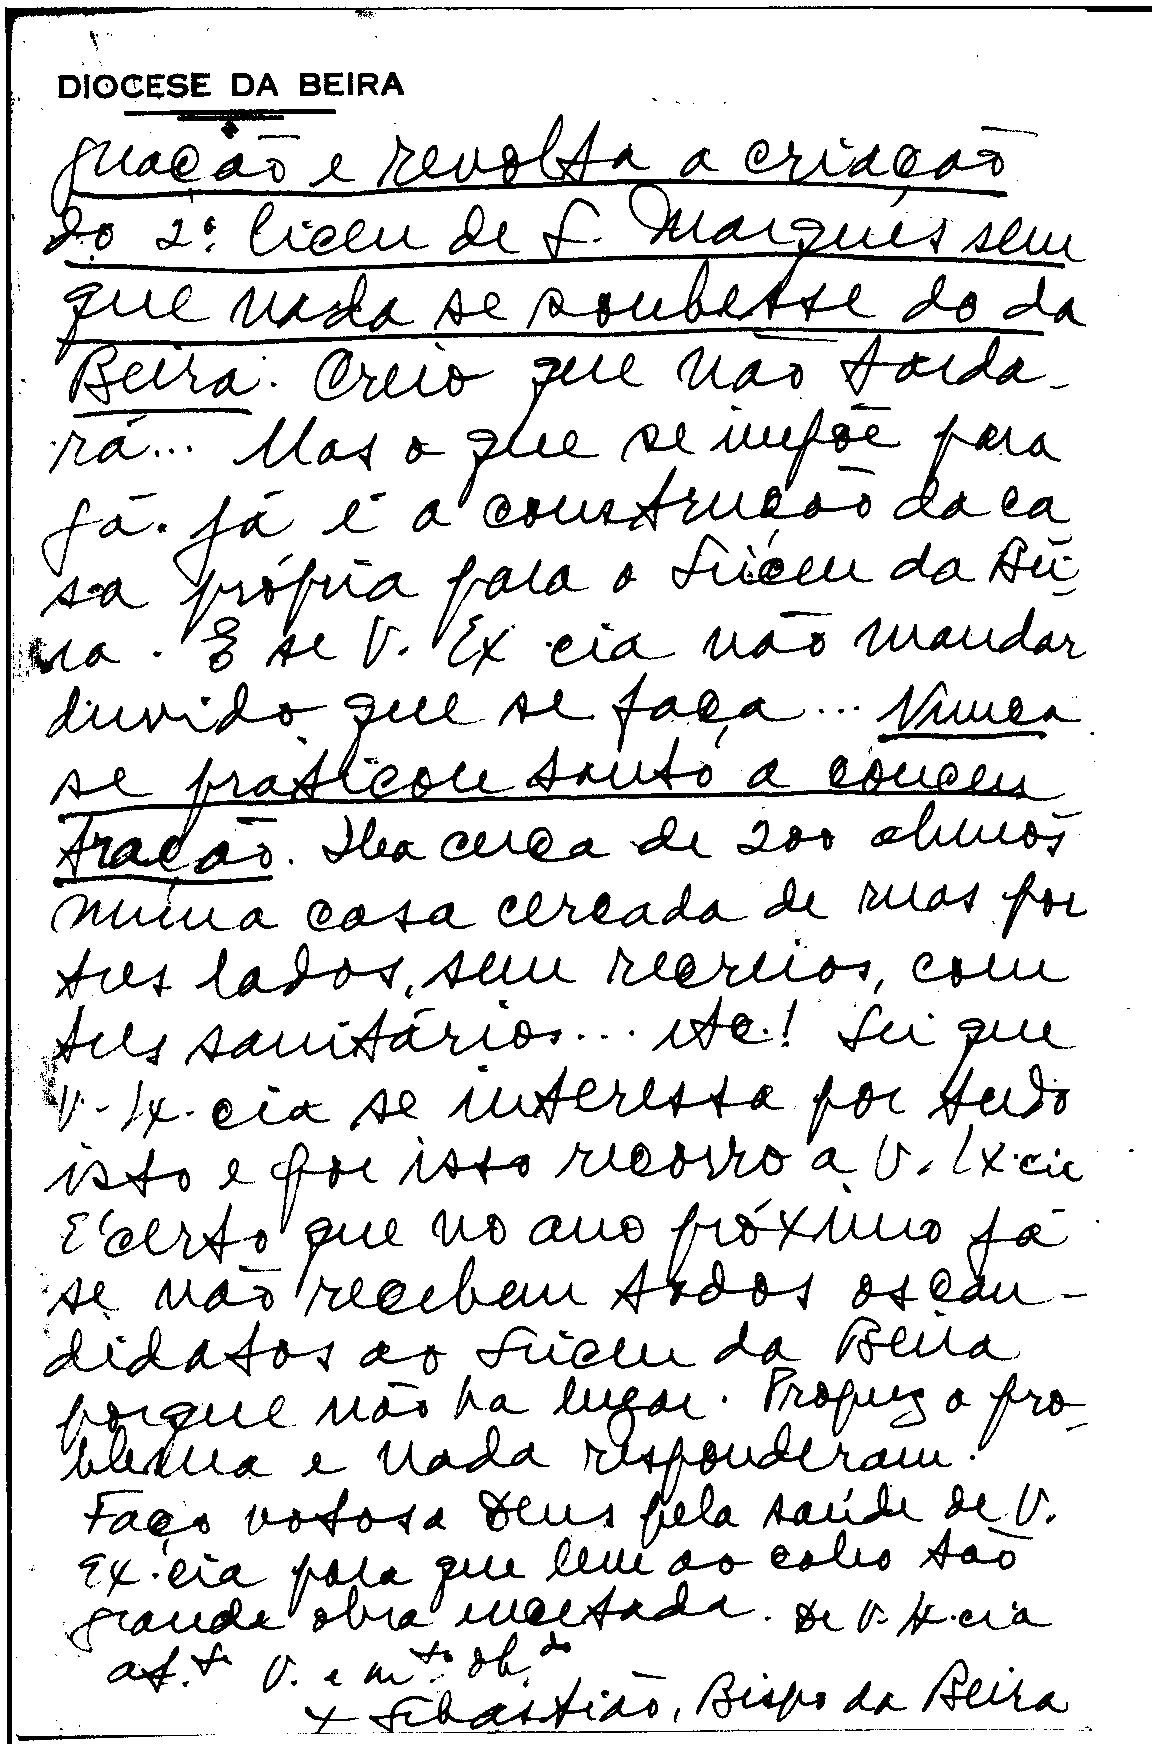 DIOCESE DA BEIRA
gnação e revolta a criação
do 2º liceu de L. Marques sem
que nada se soubesse do da
Beira. Creio que não tarda-
rá... Mas o que se impõe para
já. já é a construção da ca
sa própria para o Liceu da Bei-
ra. E se V. Ex.cia não mandar
duvido que se faça... Nunca
se praticou tanto a concen
tração. Ha cerca de 200 alunos
numa casa cercada de ruas por
tres lados, sem recreios, com
tres sanitários... etc.! Sei que
V. Ex.cia se interessa por tudo
isto e por isso recorro a V. Ex.cia
É certo que no ano próximo já
se não recebem todos os can-
didatos ao Liceu da Beira
porque não ha lugar. Propuz o pro-
blema e nada responderam.
Faço votos a Deus pela saúde de V.
Ex.cia para que leve ao cabo tão
grande obra encetada. De V. Ex.cia
at.to V. e m.to ob.do
+ Sebastião, Bispo da Beira